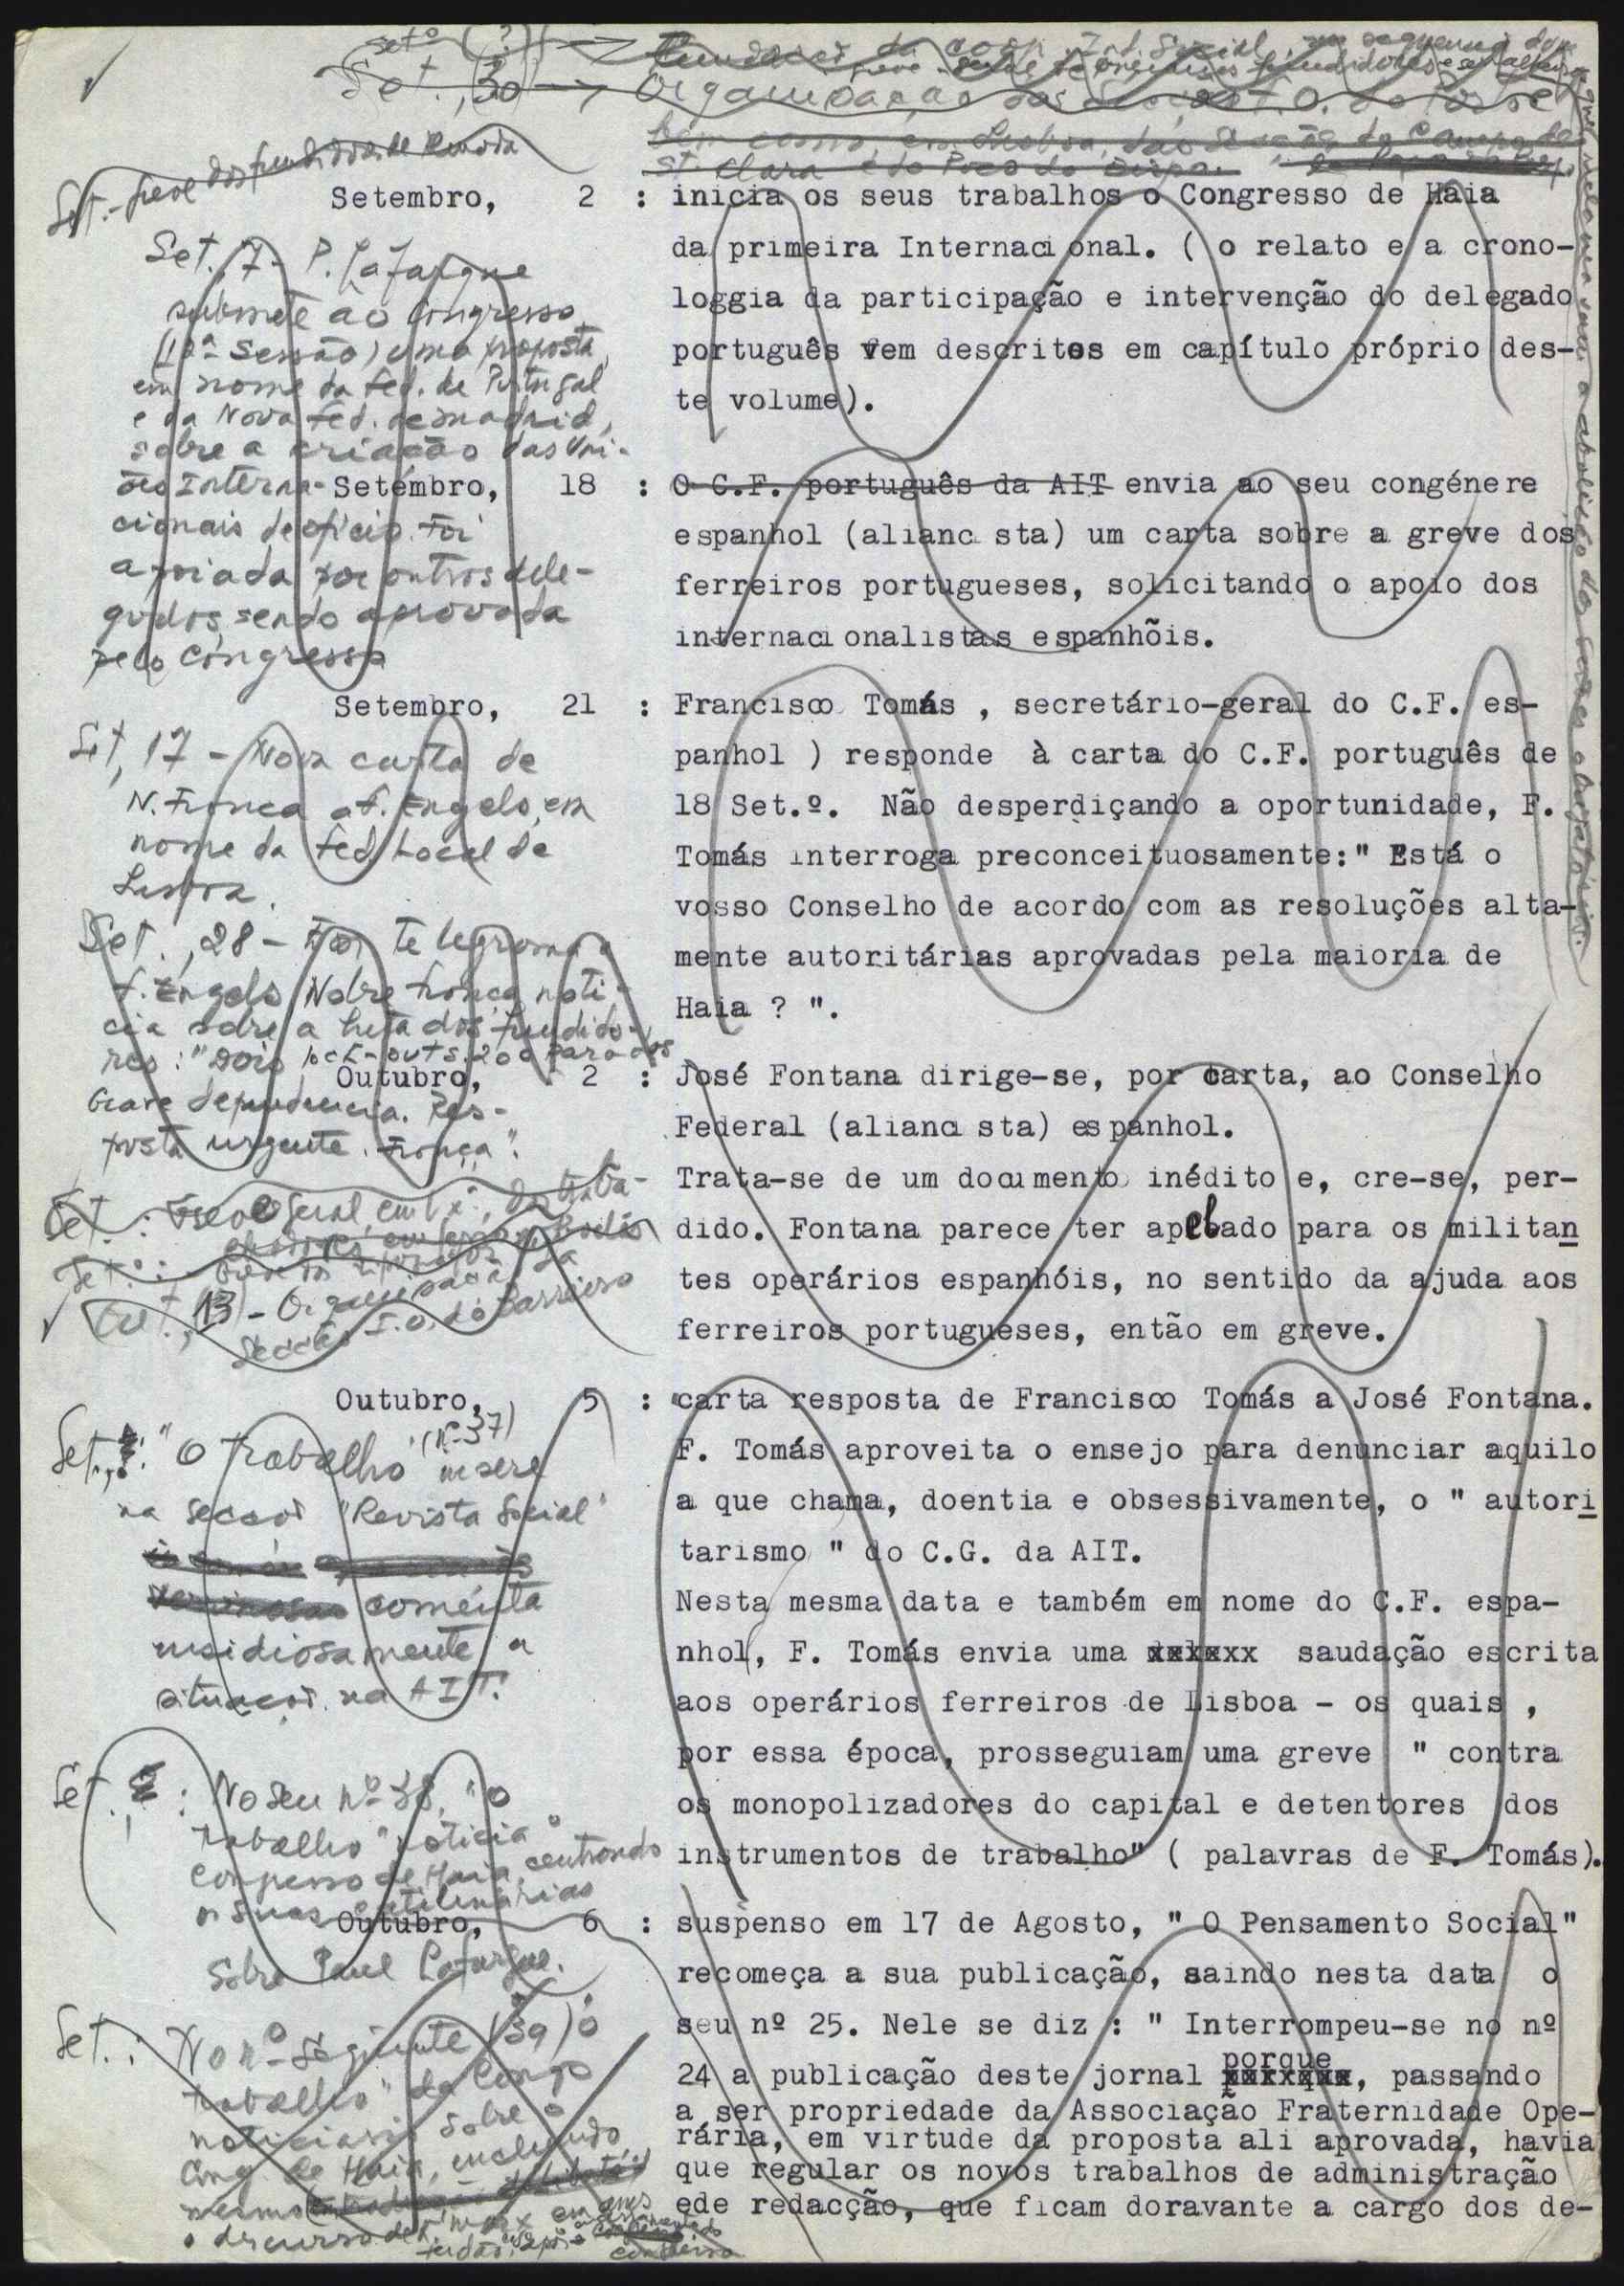 Set.º (?) → da coop. Ind. Social
greve
Set., 30 → Organização das
bem como, em Lisboa, das Secções do Campo de
St. Clara e do Poço do Bispo.
Set. - greve dos fundidores de
Setembro, 2 : inicia os seus trabalhos o Congresso de Haia
da primeira Internacional. ( o relato e a crono-
loggia da participação e intervenção do delegado
português vem descritos em capítulo próprio des-
te volume).
Set. 7 - P. Lafargue
submete ao Congresso
(12ª Sessão) uma proposta,
em nome da Fed. de Portugal
e da Nova Fed. de Madrid,
sobre a criação das Uni-
ões Interna-
cionais de ofício. Foi
apoiada por outros dele-
gados, sendo aprovada
pelo Congresso
Setembro, 18 : O C.F. português da AIT envia ao seu congénere
espanhol (alianc sta) um carta sobre a greve dos
ferreiros portugueses, solicitando o apoio dos
internacionalistas espanhõis.
Setembro, 21 : Francisco Tomás , secretário-geral do C.F. es-
panhol ) responde à carta do C.F. português de
18 Set.º. Não desperdiçando a oportunidade, F.
Tomás interroga preconceituosamente:" Está o
vosso Conselho de acordo com as resoluções alta-
mente autoritárias aprovadas pela maioria de
Haia ? ".
Set, 17 - Nova carta de
N. França a F. Engels, em
nome da Fed. Local de
Lisboa.
Set., 28 - Por telegrama a
F. Engels Nobre França noti-
cia sobre a luta dos fundido-
res: "Dois lock-outs. 200 parados
Grave dependencia. Res-
posta urgente. França".
Outubro, 2 : José Fontana dirige-se, por carta, ao Conselho
Federal (alianci sta) espanhol.
Trata-se de um documento inédito e, cre-se, per-
dido. Fontana parece ter apelado para os militan
tes operários espanhóis, no sentido da ajuda aos
ferreiros portugueses, então em greve.
Set. : Greve geral, em Lx.ª, dos traba-
Set.º : Greve dos
Out., 13 - Organização da
Secção I.O. do Barreiro
Outubro, 5 : carta resposta de Francisco Tomás a José Fontana.
F. Tomás aproveita o ensejo para denunciar aquilo
a que chama, doentia e obsessivamente, o " autori
tarismo " do C.G. da AIT.
Nesta mesma data e também em nome do C.F. espa-
nhol, F. Tomás envia uma xxxxxx saudação escrita
aos operários ferreiros de Lisboa - os quais ,
por essa época, prosseguiam uma greve " contra
os monopolizadores do capital e detentores dos
instrumentos de trabalho" ( palavras de F. Tomás).
Set., : "O Trabalho" (nº 37) insere
na secção "Revista Social"
comenta
insidiosamente a
situação na AIT.
Set. : No seu nº 38, "o
Trabalho" noticia o
Congresso de Haia, centrando
as suas
sobre Paul Lafargue.
Outubro, 6 : suspenso em 17 de Agosto, " O Pensamento Social"
recomeça a sua publicação, saindo nesta data o
seu nº 25. Nele se diz : " Interrompeu-se no nº
24 a publicação deste jornal porque xxxxxxx, passando
a ser propriedade da Associação Fraternidade Ope-
rária, em virtude da proposta ali aprovada, havia
que regular os novos trabalhos de administração
ede redacção, que ficam doravante a cargo dos de-
Set. : No nº seguinte (39) o
"Trabalho" dá longo
noticiário sobre o
Cong. de Haia, incluindo
mesmo
o discurso de K. Marx em